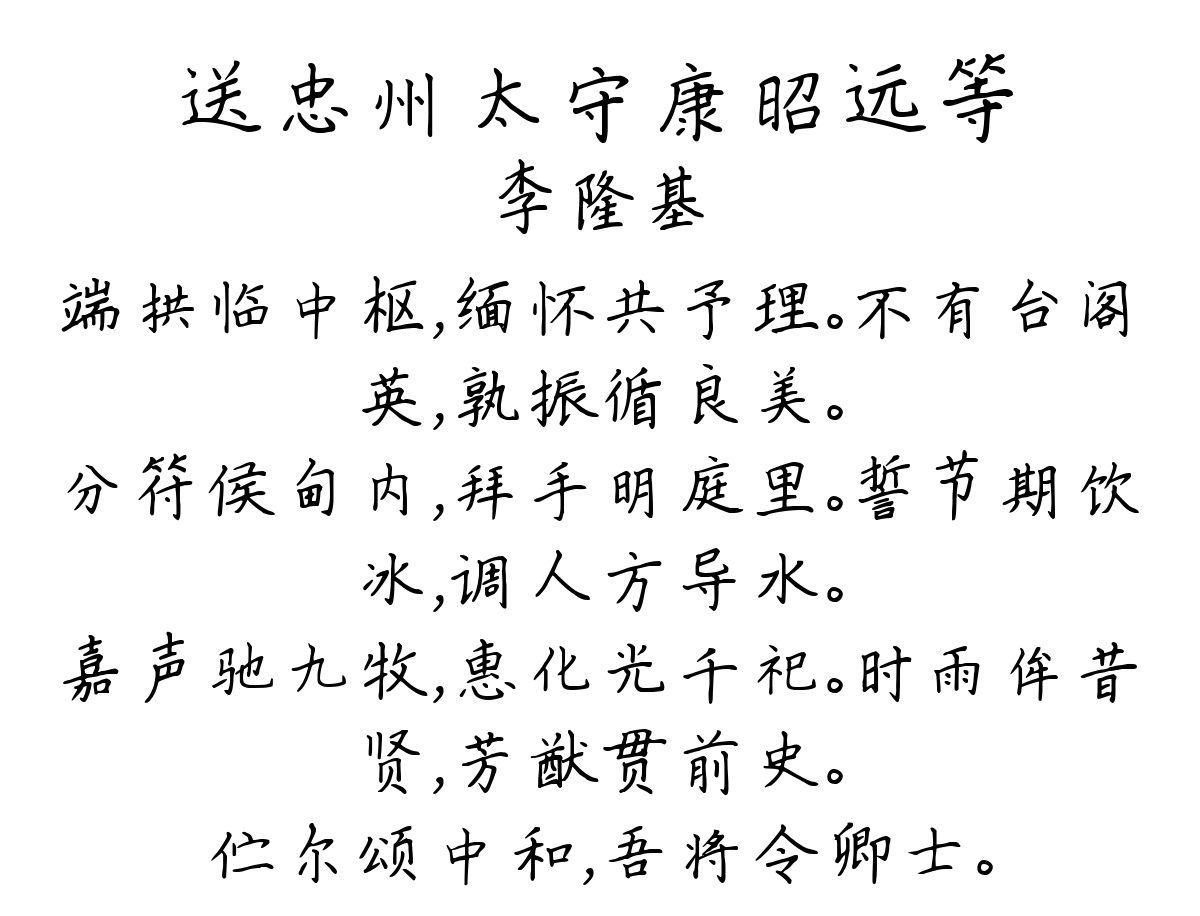 送忠州太守康昭远等
李隆基
端拱临中枢,缅怀共予理。不有台阁
英,孰振循良美。
分符侯甸内,拜手明庭里。誓节期饮
冰,调人方导水。
嘉声驰九牧,惠化光千祀。时雨侔昔
贤,芳猷贯前史。
伫尔颂中和,吾将令卿士。